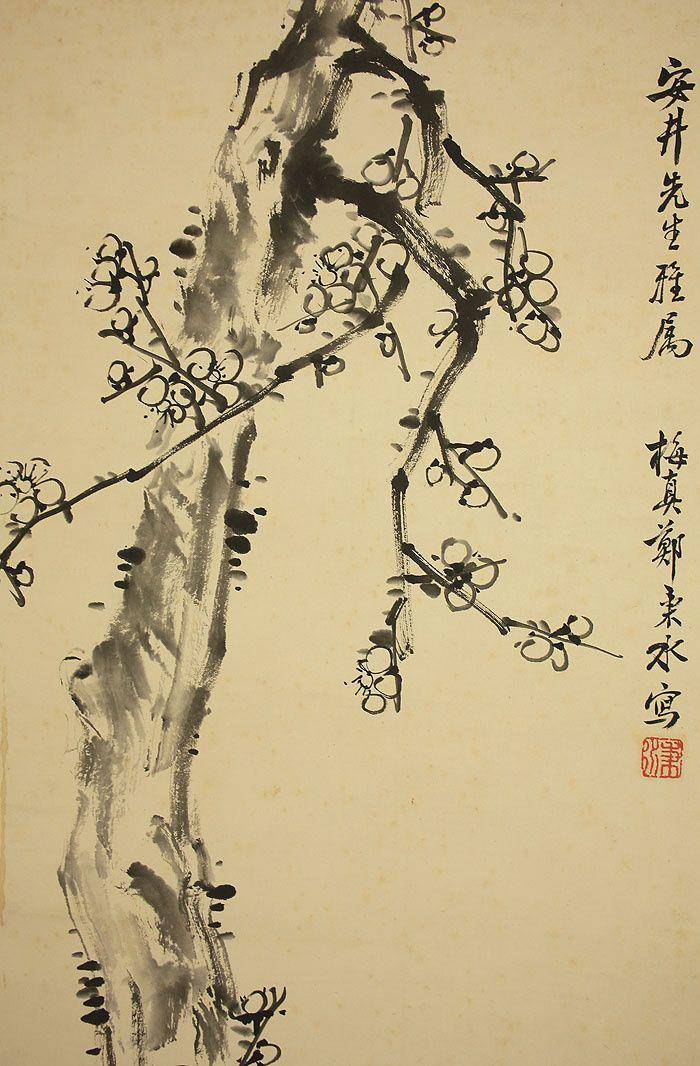 安井先生雅属 梅真鄭秉水写